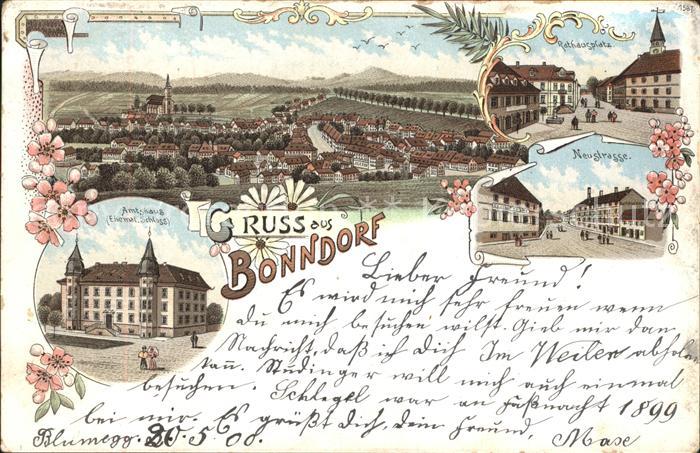 1587
Rathausplatz
Neustrasse.
Amtshaus
(Ehemal. Schloss)
GRUSS aus
BONNDORF
Lieber Freund!
Es wird mich sehr freuen wenn
du mich besuchen wilst. Gieb mir dan
Nachricht, daß ich dich Im Weiler abhol
kann. Südinger will mich auch einmal
besuchen. Schlegel war an Faßnacht 1899
bei mir. Es grüßt dich, dein Freund,
Blumegg. 20. 5. 00. Maxe